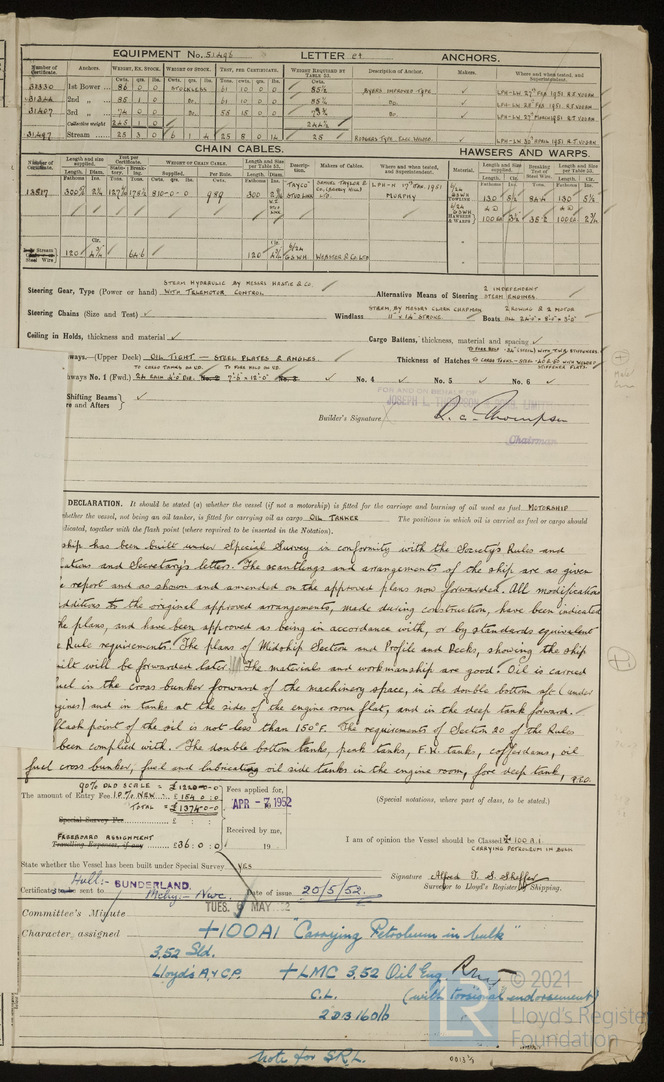 EQUIPMENT No. 51496 LETTER et ANCHORS.
Number of Certificate. Anchors. WEIGHT, EX. STOCK. WEIGHT OF STOCK. TEST, PER CERTIFICATE. WEIGHT REQUIRED BY TABLE 53. Description of Anchor. Makers. Where and when tested, and Superintendent.
Cwts. qrs. lbs. Cwts. qrs. lbs. Tons. cwts. qrs. lbs. Cwts.
51330 1st Bower ... 86 0 0 STOCKLESS 61 10 0 0 85½ BYERS IMPROVED TYPE ✓ LPH-LW 27th FEB. 1951 R.T. VODEN
51344 2nd " ... 85 1 0 Do. 61 10 0 0 85½ Do. ✓ LPH-LW 28th FEB. 1951 R.T. VODEN
51407 3rd " ... 74 0 0 Do. 55 15 0 0 Do. ✓ LPH-LW 27th MARCH 1951 R.T. VODEN
Collective weight 245 1 0 244½
51497 Stream ... 25 3 0 6 1 4 25 8 0 14 25 RODGERS TYPE ✓ LPH-LW 30th APRIL 1951 R.T. VODEN
CHAIN CABLES. HAWSERS AND WARPS.
Number of Certificate. Length and size supplied. Test per Certificate. WEIGHT OF CHAIN CABLE. Length and Size per Table 53. Description. Makers of Cables. Where and when tested, and Superintendent. Material. Length and Size supplied. Breaking Test of Steel Wire. Length and Size per Table 53.
Length. Diam. Statutory. Breaking. Supplied. Per Rule. Length. Diam. Length. Cir. Length. Cir.
Fathoms Ins. Tons. Tons. Cwts. qrs. lbs. Cwts. Fathoms Ins. Fathoms Ins. Tons. Fathoms Ins.
13817 810-0-0 989 300 TAYCO STUD LINK SAMUEL TAYLOR & CO. (BRIERLEY HILL) LTD. LPH-H 17th JAN. 1951 MURPHY 6/24 G.S.W.H. TOWLINE 130 84.4 130
6/24 G.S.W.H. HAWSERS & WARPS 100 ea. 38.2 100 ea.
Stream Steel Wire 120 64.6 120 6/24 G.S.W.H. WEBSTER & CO. LTD
Steering Gear, Type (Power or hand) STEAM HYDRAULIC BY MESSRS HASTIE & CO. WITH TELEMOTOR CONTROL
Alternative Means of Steering 2 INDEPENDENT STEAM ENGINES.
Steering Chains (Size and Test) ✓ Windlass STEAM BY MESSRS CLARK CHAPMAN 11" x 14" STROKE Boats 2 ROWING & 2 MOTOR ALL 24'-0" x 8'-0" x 3'-0"
Ceiling in Holds, thickness and material ✓ Cargo Battens, thickness, material and spacing ✓
ways.—(Upper Deck) OIL TIGHT — STEEL PLATES & ANGLES. Thickness of Hatches TO CARGO TANKS — STEEL
TO CARGO TANKS ON U.D. TO FORE HOLD ON U.D.
hways No. 1 (Fwd.) 24 EACH 4'-0" DIA. No. 2 7'-6" x 12'-0" No. 3 ✓ No. 4 ✓ No. 5 ✓ No. 6 ✓
Shifting Beams
re and Afters } ✓
FOR AND ON BEHALF OF
JOSEPH L. THOMPSON & SONS LIMITED
Builder's Signature R. C. Thompson
Chairman
DECLARATION. It should be stated (a) whether the vessel (if not a motorship) is fitted for the carriage and burning of oil used as fuel MOTORSHIP
whether the vessel, not being an oil tanker, is fitted for carrying oil as cargo OIL TANKER The positions in which oil is carried as fuel or cargo should
dicated, together with the flash point (where required to be inserted in the Notation).
ship has been built under Special Survey in conformity with the Society's Rules and
ations and Secretary's letters. The scantlings and arrangements of the ship are as given
e report and as shown and amended on the approved plans now forwarded. All modifications
dditions to the original approved arrangements, made during construction, have been indicated
he plans, and have been approved as being in accordance with, or by standards equivalent
e Rule requirements. The plans of Midship Section and Profile and Decks, showing the ship
uilt will be forwarded later. The materials and workmanship are good. Oil is carried
uel in the cross bunker forward of the machinery space, in the double bottom aft (under
gines) and in tanks at the sides of the engine room flat, and in the deep tank forward.
flash point of the oil is not less than 150°F. The requirements of Section 20 of the Rules
been complied with. The double bottom tanks, peak tanks, F.W. tanks, cofferdams, oil
fuel cross bunker, fuel and lubricating oil side tanks in the engine room, fore deep tank, P.T.O.
90% OLD SCALE = £1220-0-0
The amount of Entry Fee 10% NEW = £ 154 : 0 : 0
TOTAL = £1374-0-0
Special Survey Fee £ : :
FREEBOARD ASSIGNMENT
Travelling Expenses, if any £36 : 0 : 0
Fees applied for,
APR - 7 1952
Received by me,
19
(Special notations, where part of class, to be stated.)
I am of opinion the Vessel should be Classed ✠ 100 A.1.
CARRYING PETROLEUM IN BULK
State whether the Vessel has been built under Special Survey YES
Signature Alfred T. S. Sheffer
Surveyor to Lloyd's Register of Shipping.
Hull:- SUNDERLAND.
Certificate to be sent to Mchy:- Nwc. Date of issue 20/5/52.
Committee's Minute TUES. 6 MAY 1952
Character assigned +100A1 "Carrying Petroleum in bulk"
3.52 Sld.
Lloyd's A & C.P. +LMC 3.52 Oil Eng.
C.L. (with torsional endorsement)
2DB 160 lb
Note for S.R.L.
© 2021
Lloyd's Register
Foundation
LR